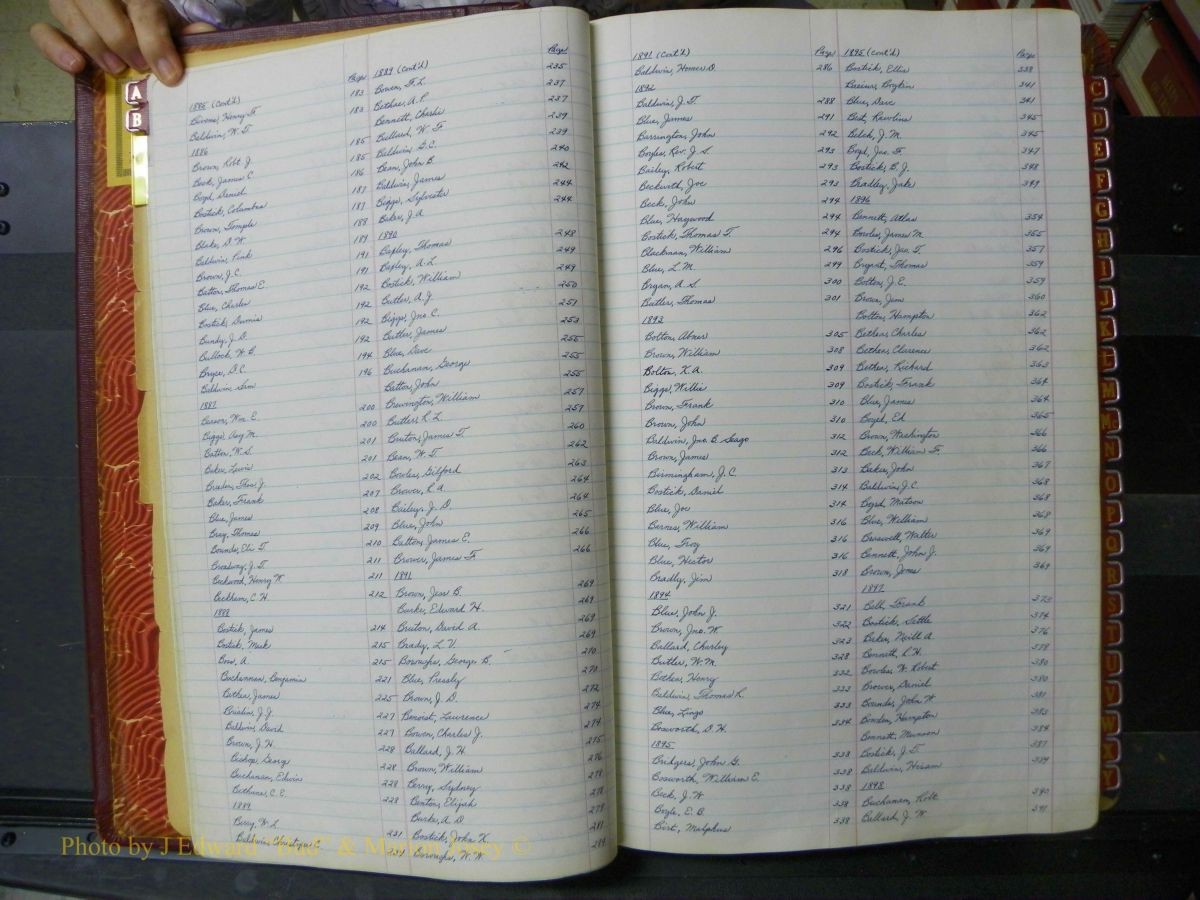 A
B
Page
1885 (Cont'd)
Bivens, Henry F. 183
Baldwin, W. T. 183
1886
Brown, Robt. J. 185
Book, James C. 185
Boyd, Daniel 186
Bostick, Columbus 187
Brown, Temple 187
Blake, D. W. 188
Baldwin, Pink 189
Brown, J. C. 191
Batton, Thomas E. 191
Blue, Charles 192
Bostick, Dumis 192
Bundy, J. D. 192
Bullock, W. B. 192
Bryce, D. C. 194
Baldwin, Sim 196
1887
Benson, Wm. E. 200
Biggs, Asy M. 200
Batton, W. S. 201
Baker, Lewis 201
Broeder, Theo. J. 202
Baker, Frank 207
Blue, James 208
Bray, Thomas 209
Bounds, Eli T. 210
Broadway, J. T. 211
Beckwood, Henry W. 211
Beckhem, C. H. 212
1888
Bostick, James 214
Bostick, Meek 215
Bow, A. 215
Buchannan, Benjamin 221
Bethea, James 225
Breslin, J. J. 227
Baldwin, David 227
Brown, J. H. 228
Bishop, George 228
Buchanan, Edwin 228
Bethune, C. E.
1889
Berry, W. L. 231
Baldwin, Christopher C. 231
Page
1889 (Cont'd)
Bowen, F. L. 235
Bethea, A. P. 237
Bennett, Charlie 237
Bullard, W. F. 239
Baldwin, G. C. 239
Bean, John B. 240
Baldwin, James 242
Biggs, Sylvester 244
Baker, J. A. 244
1890
Bagley, Thomas 248
Bagley, A. L. 249
Bostick, William 249
Butler, A. J. 250
Biggs, Jno. C. 251
Butler, James 253
Blue, Dave 255
Buchanan, George 255
Batton, John 255
Brewington, William 257
Butler, R. L. 257
Bruton, James T. 260
Bean, W. T. 262
Bowles, Gilford 263
Brower, R. A. 264
Bailey, J. D. 264
Blue, John 265
Batton, James E. 266
Brower, James F. 266
1891
Brown, Jess B. 269
Burke, Edward H. 269
Bruton, David A. 269
Brady, L. V. 269
Boroughs, George B. 270
Blue, Pressly 270
Brown, J. D. 272
Benoist, Lawrence 274
Bowen, Charles J. 274
Ballard, J. H. 275
Brown, William 276
Berry, Sydney 278
Benton, Elijah 278
Burke, A. D. 279
Bostick, John K. 281
Boroughs, W. W. 284
Page
1891 (Cont'd)
Baldwin, Homer D. 286
1892
Baldwin, J. T. 288
Blue, James 291
Barrington, John 292
Boyles, Rev. J. S. 293
Bailey, Robert 293
Beckwith, Joe 293
Beck, John 294
Blue, Haywood 294
Bostick, Thomas T. 294
Blackman, William 296
Blue, L. M. 299
Bryan, A. S. 300
Butler, Thomas 301
1893
Bolton, Abner 305
Brown, William 308
Bolton, K. A. 309
Biggs, Willie 309
Brown, Frank 310
Brown, John 310
Baldwin, Jno. B. Seago 312
Brown, James 312
Birmingham, J. C. 313
Bostick, Daniel 314
Blue, Joe 314
Barnes, William 316
Blue, Troy 316
Blue, Hector 316
Bradly, Jim 318
1894
Blue, John J. 321
Brown, Jno. W. 322
Ballard, Charley 323
Butler, W. M. 328
Bethea, Henry 332
Baldwin, Thomas R. 333
Blue, Lingo 333
Bosworth, D. H. 334
1895
Bridgers, John G. 338
Bosworth, William E. 338
Beck, J. W. 338
Boyle, E. B. 338
Bert, Malphus 338
Page
1895 (Cont'd)
Bostick, Ellis 339
Brewer, Boykin 341
Blue, Dave 341
Best, Rawlins 345
Belch, J. M. 345
Boyd, Jno. F. 347
Bostick, B. J. 348
Bradley, Jake 349
1896
Bennett, Atlas 354
Bowles, James M. 355
Bostick, Jas. T. 357
Bryant, Thomas 359
Bolton, J. E. 359
Brown, Jim 360
Bolton, Hampton 362
Bethea, Charles 362
Bethea, Clarence 362
Bethea, Richard 363
Bostick, Frank 364
Blue, James 364
Boyd, Ed 365
Brown, Washington 366
Beck, William F. 366
Baker, John 367
Baldwin, J. C. 368
Boyd, Matson 368
Blue, William 368
Braswell, Walter 369
Bennett, John J. 369
Brown, Jones 369
1897
Bell, Frank 373
Bostick, Settle 374
Baker, Neill A. 376
Bennett, L. H. 378
Bowles, W. Robert 380
Brower, Daniel 380
Bounds, John W. 381
Borden, Hampton 383
Bennett, Munson 384
Bostick, J. T. 387
Baldwin, Hiram 389
1898
Buchanan, Robt. 390
Ballard, J. W. 391
C
D
E
F
G
H
I
J
K
L
M
Mc
N
O
P
Q
R
S
T
U
V
W
Y
Photo by J Edward "Bud" & Marion